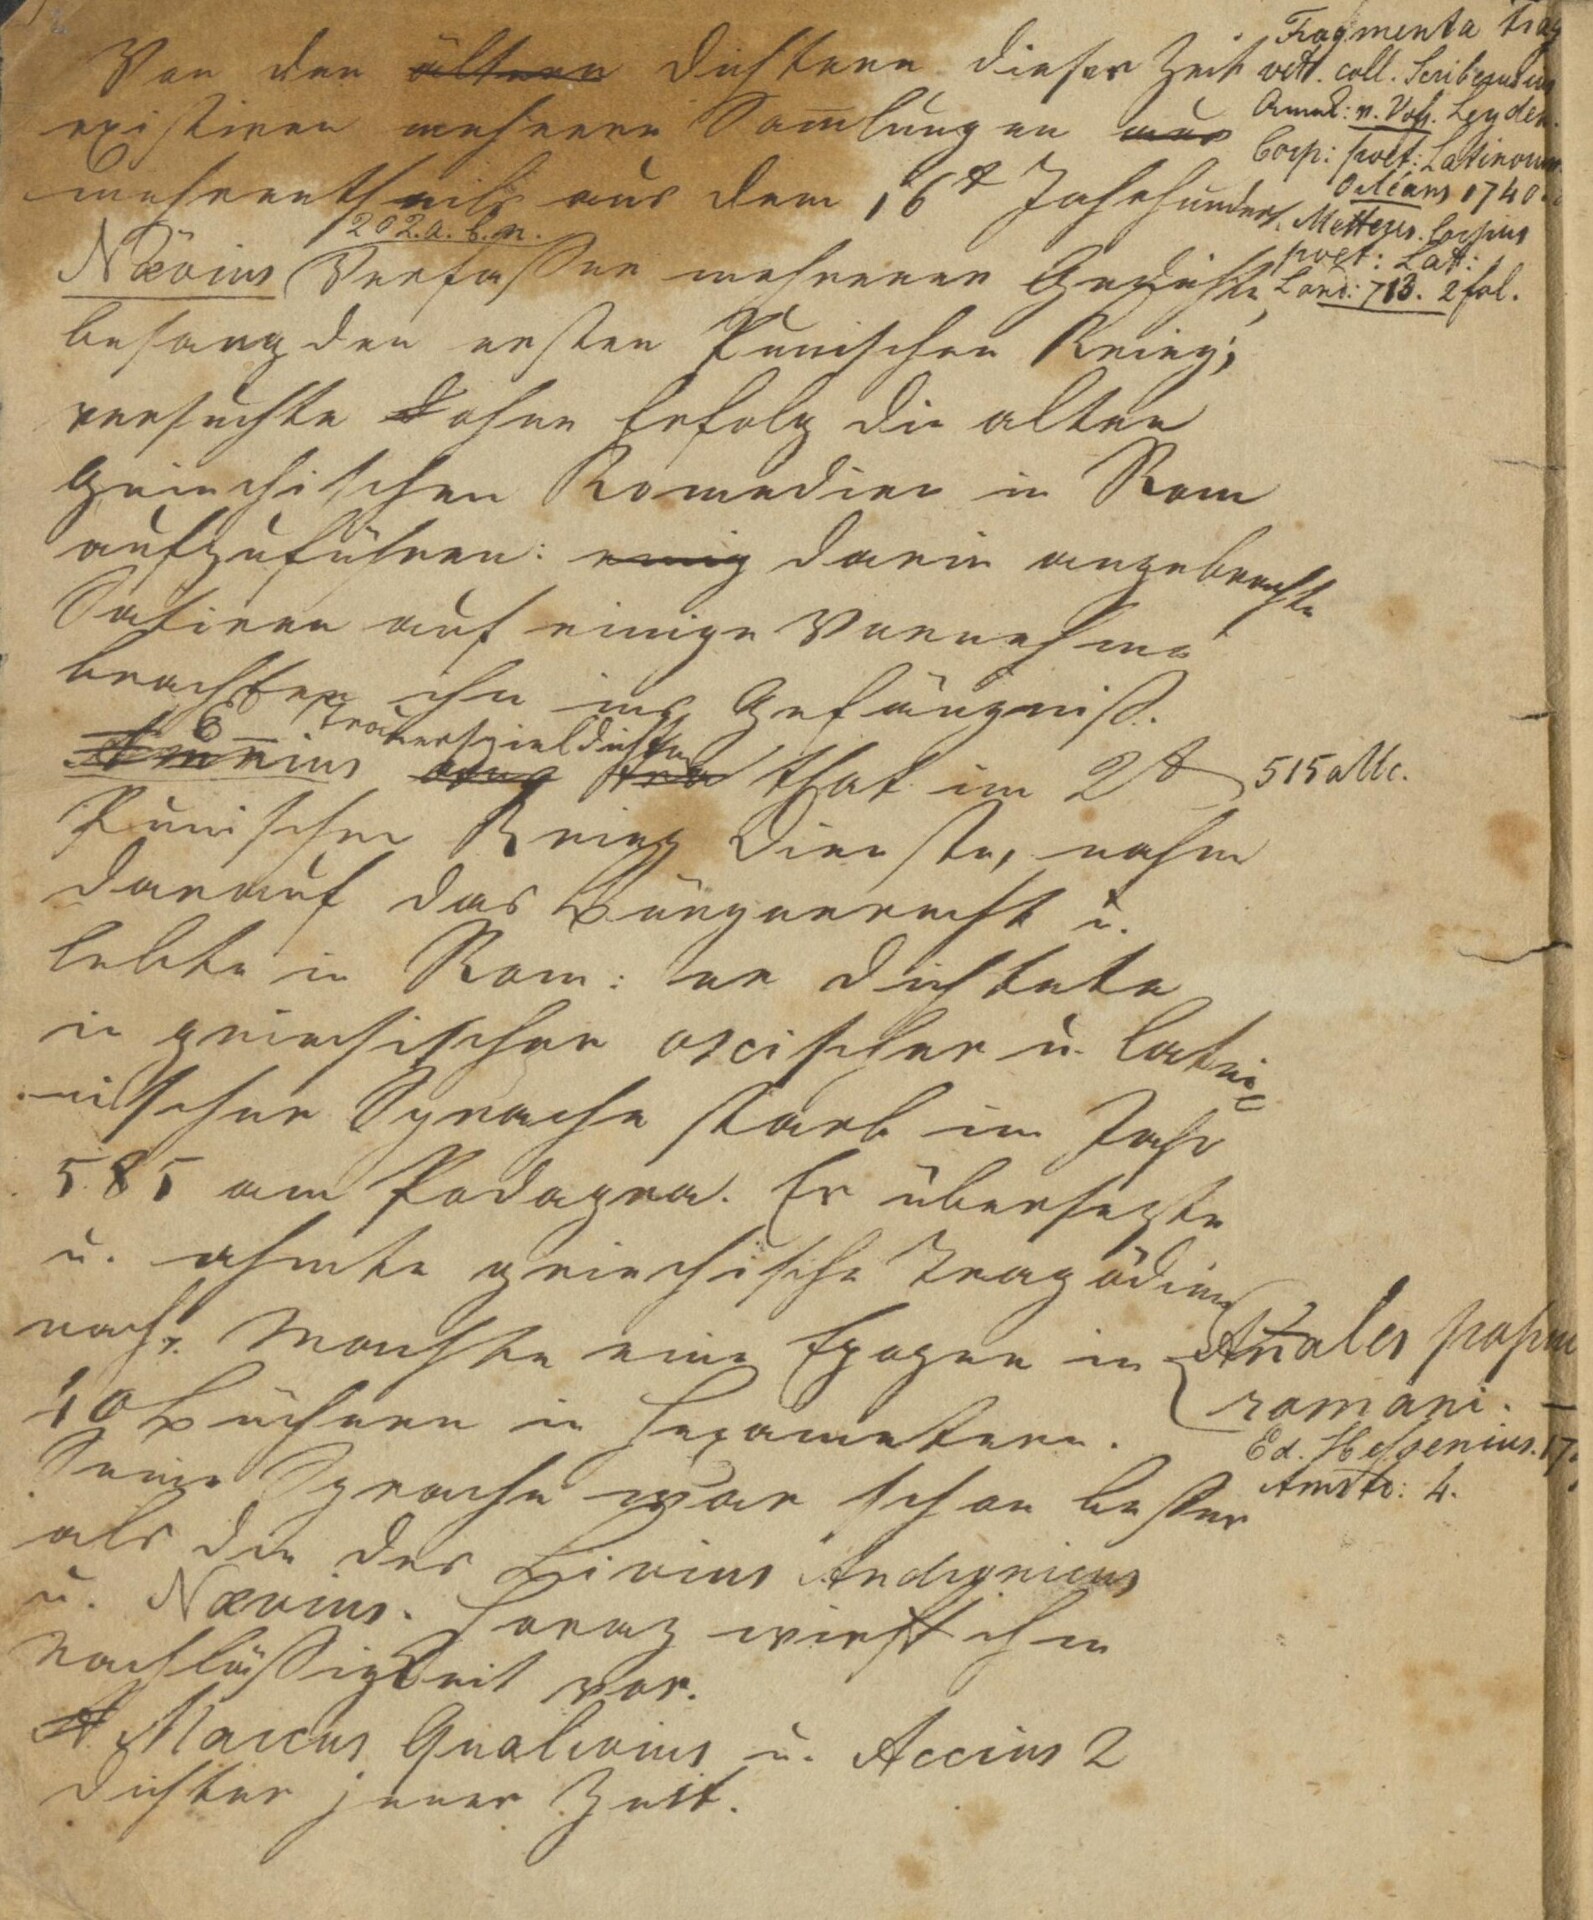 Von den ältern Dichtern dieser Zeit
existiren mehrere Sammlungen aus
mehrentheils aus dem 16t Jahrhundert.
202. a. C. n.
Nævius Verfasser mehrerer Gedichte,
besang den ersten Punischen Krieg;
versuchte ohne Erfolg die alten
griechischen Komedien in Rom
aufzuführen: einig darin angebrachte
Satiren auf einige Vornehme
brachten ihn ins Gefängniß.
E Trauerspieldichter
Ennius that im 2t
Punischen Krieg Dienste, nahm
darauf das Bürgerrecht u.
lebte in Rom: er dichtete
in griechischer oscischer u. latei=
nischer Sprache starb im Jahr
585 am Podagra. Er übersezte
u. ahmte griechische Tragödien
nach. Machte eine Epopee in
10 Büchern in Hexametern.
Seine Sprache war schon besser
als die des Livius Andronicus
u. Nævius. Horaz wirft ihm
Nachläßigkeit vor.
Marcus Qualivius u. Accius 2
Dichter jener Zeit.
Fragmenta Trag
vett. coll. Scriberius
n. Voss. Leyden.
Corp: poet: Latinorum
Orléans 1740.
Corpus
poet: Lat:
Lond: 713. 2 fol.
515 a Uc.
Añales popu
romani.
Ed. Hessenius. 17
Amst: 4.